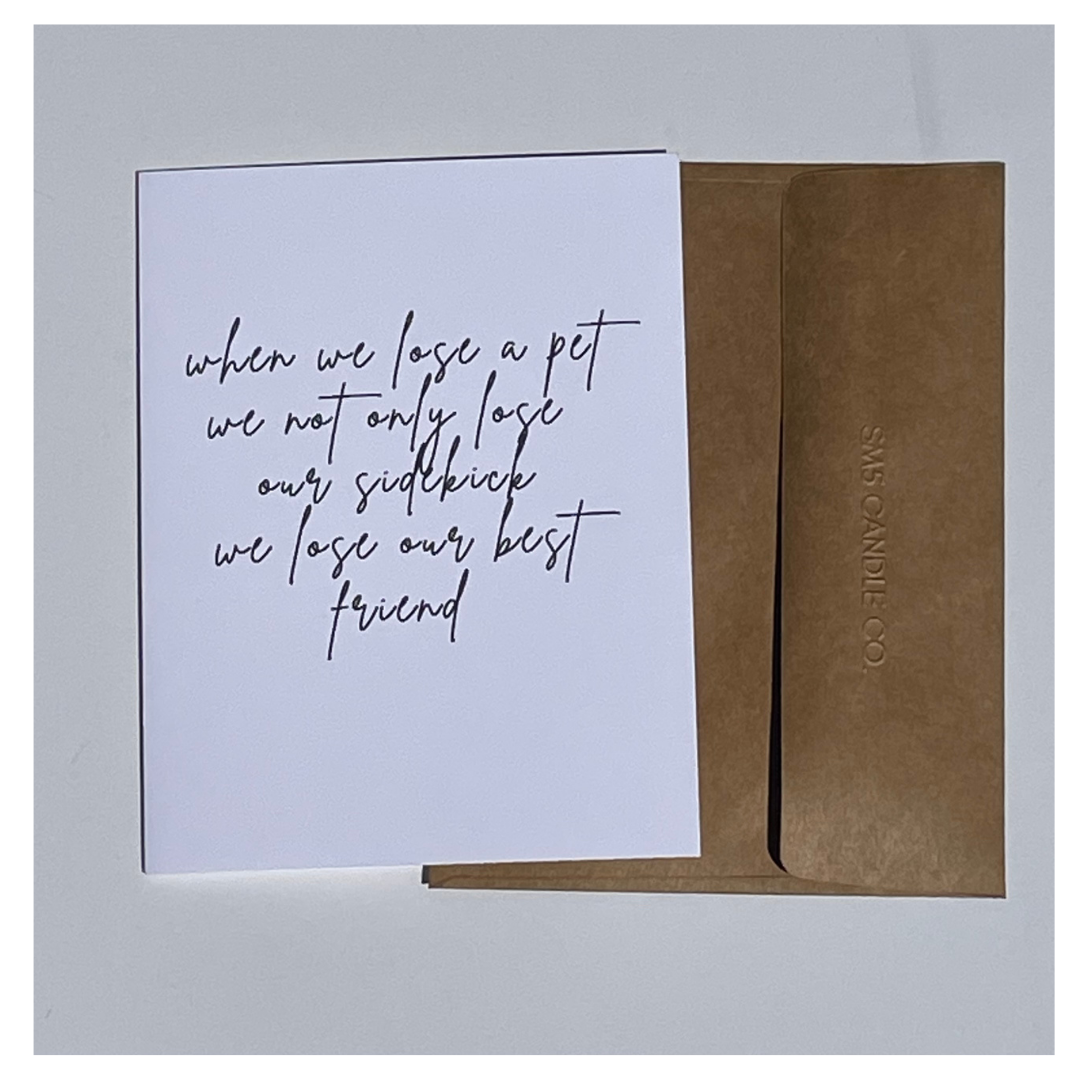 when we lose a pet
we not only lose
our sidekick
we lose our best
friend
SMS CANDLE CO.